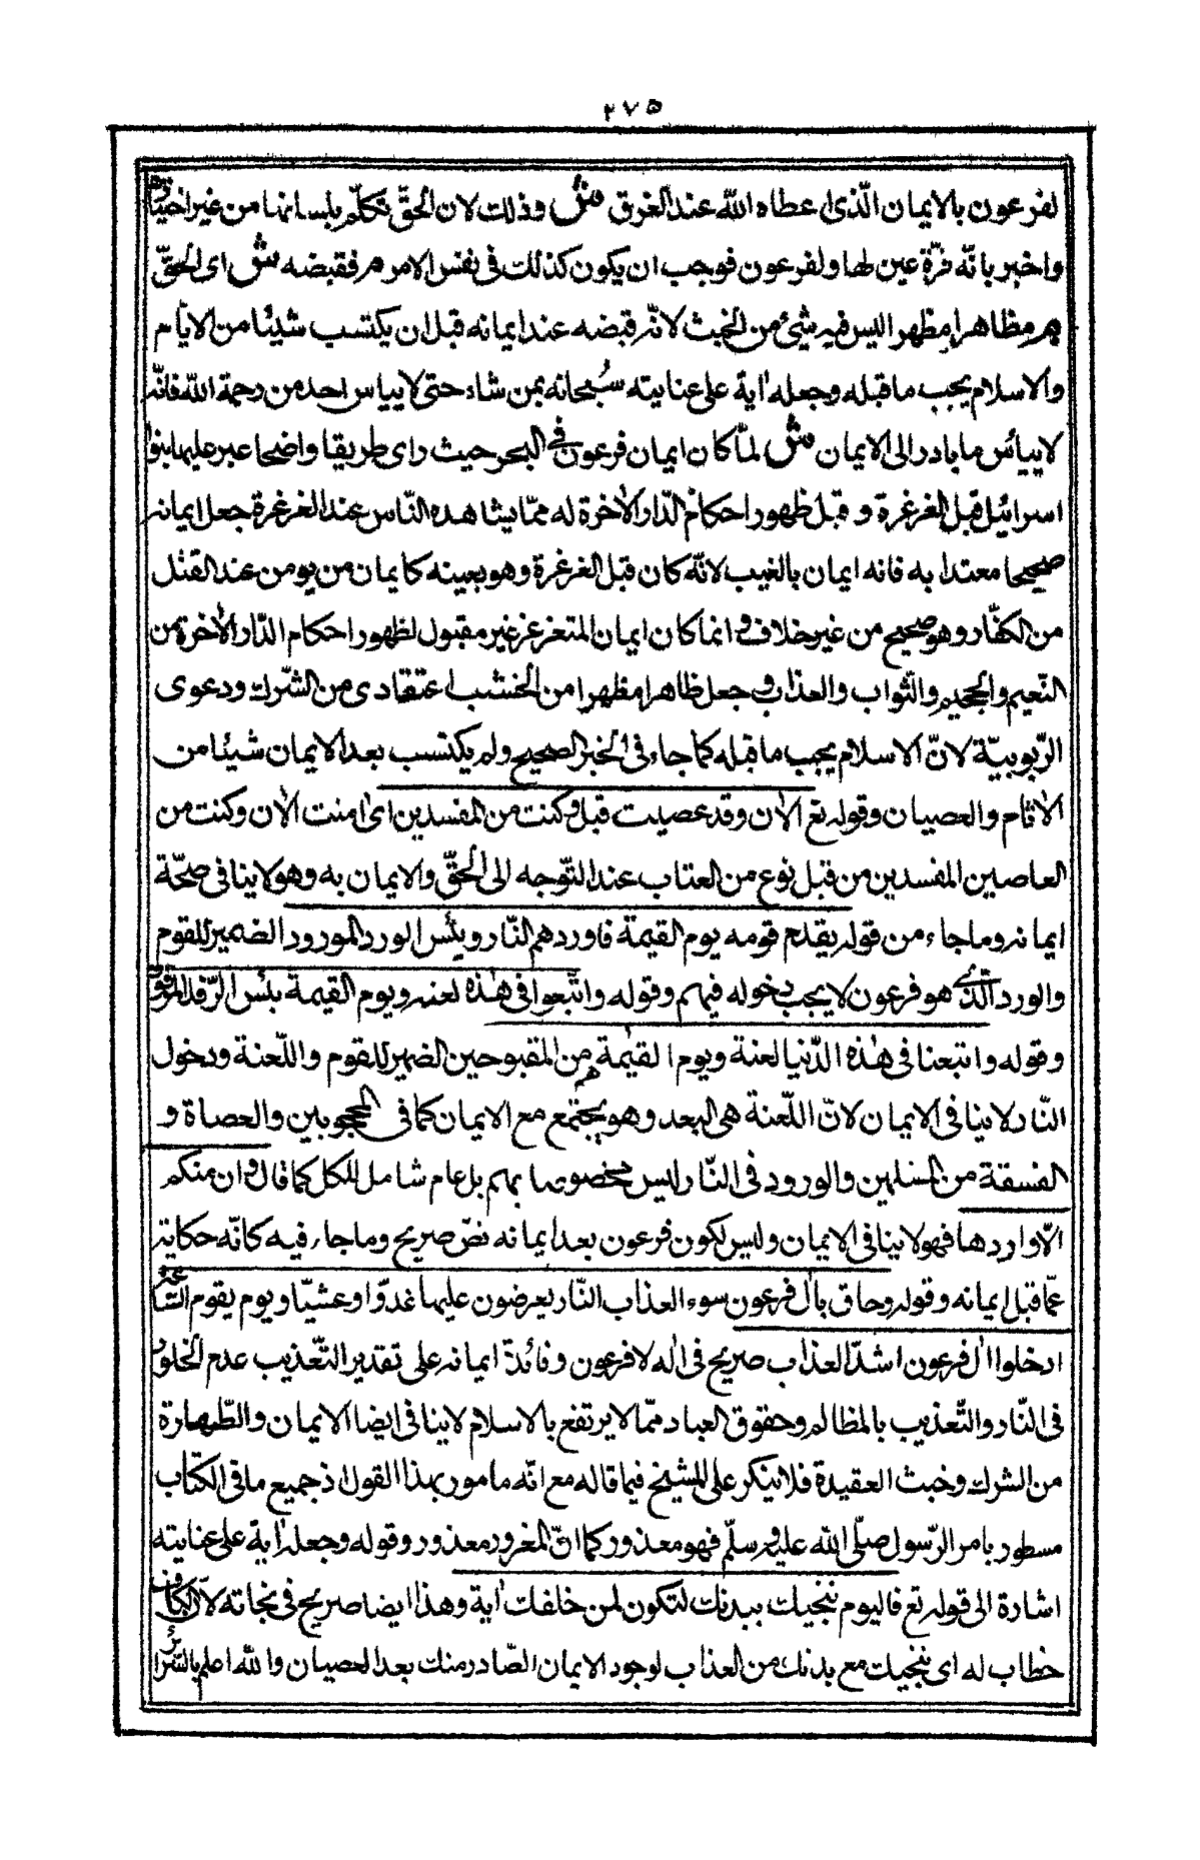 ٢٧٥
لفرعون بالايمان الّذى اعطاه اللّه عند الغرق ش وذلك لان الحقّ تكلّم بلسانها من غير اختيارها
واخبر بانّه قرّة عين لها ولفرعون فوجب ان يكون كذلك فى نفس الامر م فقبضه ش اى الحقّ
م طاهرا مطهرا ليس فيه شئ من الخبث لانّه قبضه عند ايمانه قبل ان يكتسب شيئا من الاثام
والاسلام يجب ما قبله وجعله اية على عنايته سُبحانه بمن شاء حتى لا ييأس احد من رحمة اللّه فانّه
لا ييأس ما بادر الى الايمان ش لمّا كان ايمان فرعون فى البحر حيث راى طريقا واضحا عبر عليها بنوا
اسرائيل قبل الغرغرة وقبل ظهور احكام الدّار الاخرة له ممّا يشاهده النّاس عند الغرغرة جعل ايمانه
صحيحا معتدا به فانه ايمان بالغيب لانّه كان قبل الغرغرة وهو بعينه كايمان من يومن عند القتل
من الكفّار وهو صحيح من غير خلاف وانما كان ايمان المتغرغر غير مقبول لظهور احكام الدّار الاخرة من
النّعيم والجحيم والثّواب والعذاب و جعل طاهرا مطهرا من الخبث اعتقادى من الشّرك ودعوى
الرّبوبيّة لانّ الاسلام يجب ما قبله كما جاء فى الخبر الصحيح ولم يكتسب بعد الايمان شيئا من
الاثام والعصيان وقوله تع الان وقد عصيت قبل وكنت من المفسدين اى امنت الان وكنت من
العاصين المفسدين من قبل نوع من العتاب عند التّوجه الى الحقّ والايمان به وهو لا ينافى صحّة
ايمانه وما جاء من قوله يقدم قومه يوم القيمة فاوردهم النّار وبئس الورد المورود الضمير للقوم
والورد الّذى هو فرعون لا يجب دخوله فيهم وقوله واتبعوا فى هذه لعنه ويوم القيمة بئس الرّفد المرفود
وقوله واتبعنا فى هذه الدّنيا لعنة ويوم القيمة هم من المقبوحين الضمير للقوم واللّعنة ودخول
النّار لا ينافى الايمان لانّ اللّعنة هى البعد وهو يجتمع مع الايمان كما فى المحجوبين والعصاة و
الفسقة من المسلمين والورود فى النّار ليس مخصوصا بهم بل عام شامل للكل كما قال وان منكم
الّا واردها فهو لا ينافى الايمان وليس لكون فرعون بعد ايمانه نصّ صريح وما جاء فيه كانّه حكاية
عمّا قبل ايمانه وقوله وحاق بال فرعون سوء العذاب النّار يعرضون عليها غدوّا وعشيّا ويوم يقوم السّاعة
ادخلوا ال فرعون اشدّ العذاب صريح فى اله لا فرعون وفائدة ايمانه على تقدير التّعذيب عدم الخلود
فى النّار والتّعذيب بالمظالم وحقوق العباد ممّا لا يرتفع بالاسلام لا ينافى ايضا الايمان والطّهارة
من الشرك وخبث العقيدة فلا ينكر على الشيخ فيما قاله مع انّه مامور بهذا القول اذ جميع ما فى الكتاب
مسطور بامر الرّسول صلّى اللّه عليه وسلّم فهو معذور كما انّ المغرور معذور وقوله وجعله اية على عنايته
اشارة الى قوله تع فاليوم ننجيك ببدنك لتكون لمن خلفك اية وهذا ايضا صريح فى نجاته لانّ الكاف
خطاب له اى ننجيك مع بدنك من العذاب لوجود الايمان الصّادر منك بعد العصيان واللّه اعلم بالسّرائر